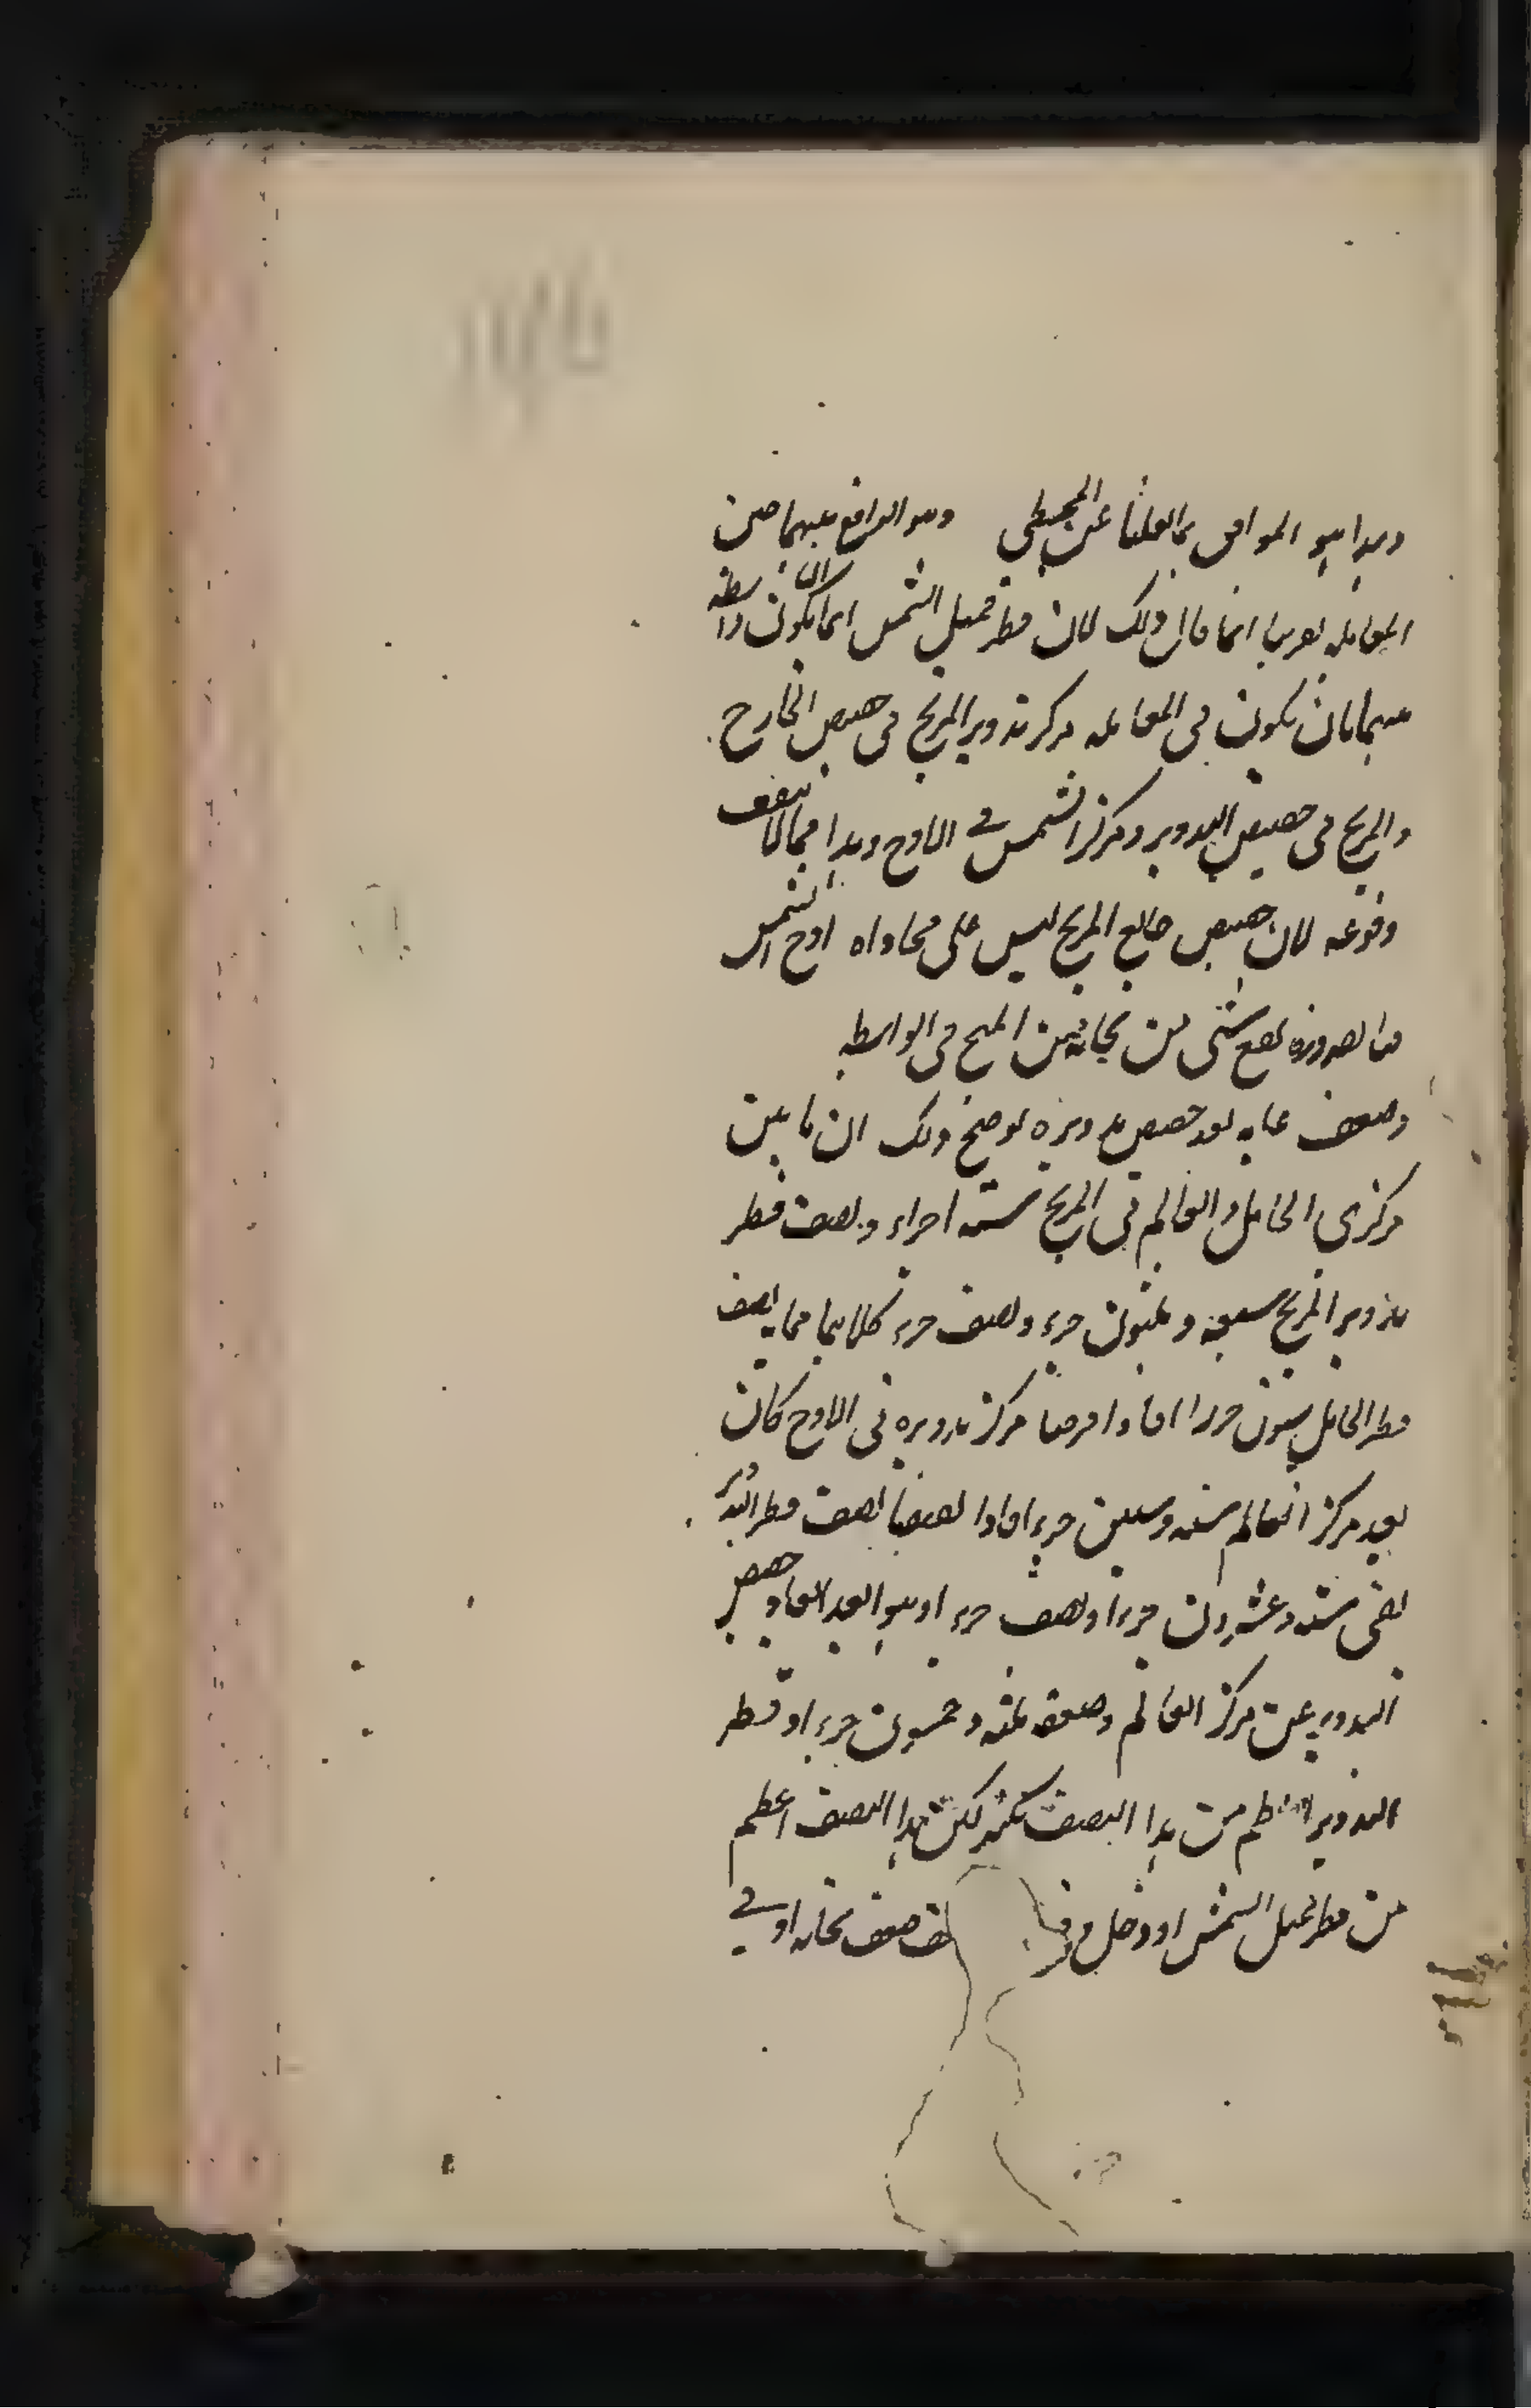 وهذا هو الموافق لما نقلنا عن المجسطي وهو الواقع بينهما حين
المقابلة تقريبا انما قال ذلك لان قطر ممثل الشمس انما يكون الواسطة
بينهما بان يكون في المقابلة مركز تدوير المريخ في حضيض الخارج
والمريخ في حضيض التدوير ومركز الشمس في الاوج وهذا مما لا يتفق
وقوعه لان حضيض خارج المريخ ليس على محاذاة اوج الشمس
فبالضرورة يقع شئ من المتمم في الواسطة
وضعف غاية بعد حضيض تدويره توضيح ذلك ان ما بين
مركزي الحامل والعالم في المريخ ستة اجزاء ونصف قطر
تدوير المريخ تسعة وثلثون جزء ونصف جزء كلاهما مما به نصف
قطر الحامل ستون جزءا فاذا فرضنا مركز تدويره في الاوج كان
بعد مركز العالم ستة وستين جزء فاذا نقصنا نصف قطر التدوير
بقى ستة وعشرون جزءا ونصف جزء وهو البعد الابعد لحضيض
التدوير عن مركز العالم وضعفه ثلثة وخمسون جزء او قطر
التدوير اعظم من هذا الضعف بكثير لكن هذا الضعف اعظم
من قطر ممثل الشمس او دخل في ضعف ثخانة او في